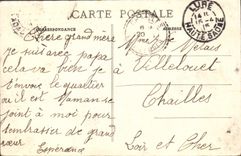 CARTE POSTALE
CORRESPONDANCE
ADRESSE
LURE
HAUTE-SAONE
Chère grand mère
je suis avec papa
cela va bien je
t'envoie le quartier
ou il est Maman se
joint à moi pour
t'embrasser de grand
cœur
Espérance
Mme Melais
à Villelouet
Chailles
Loir et Cher